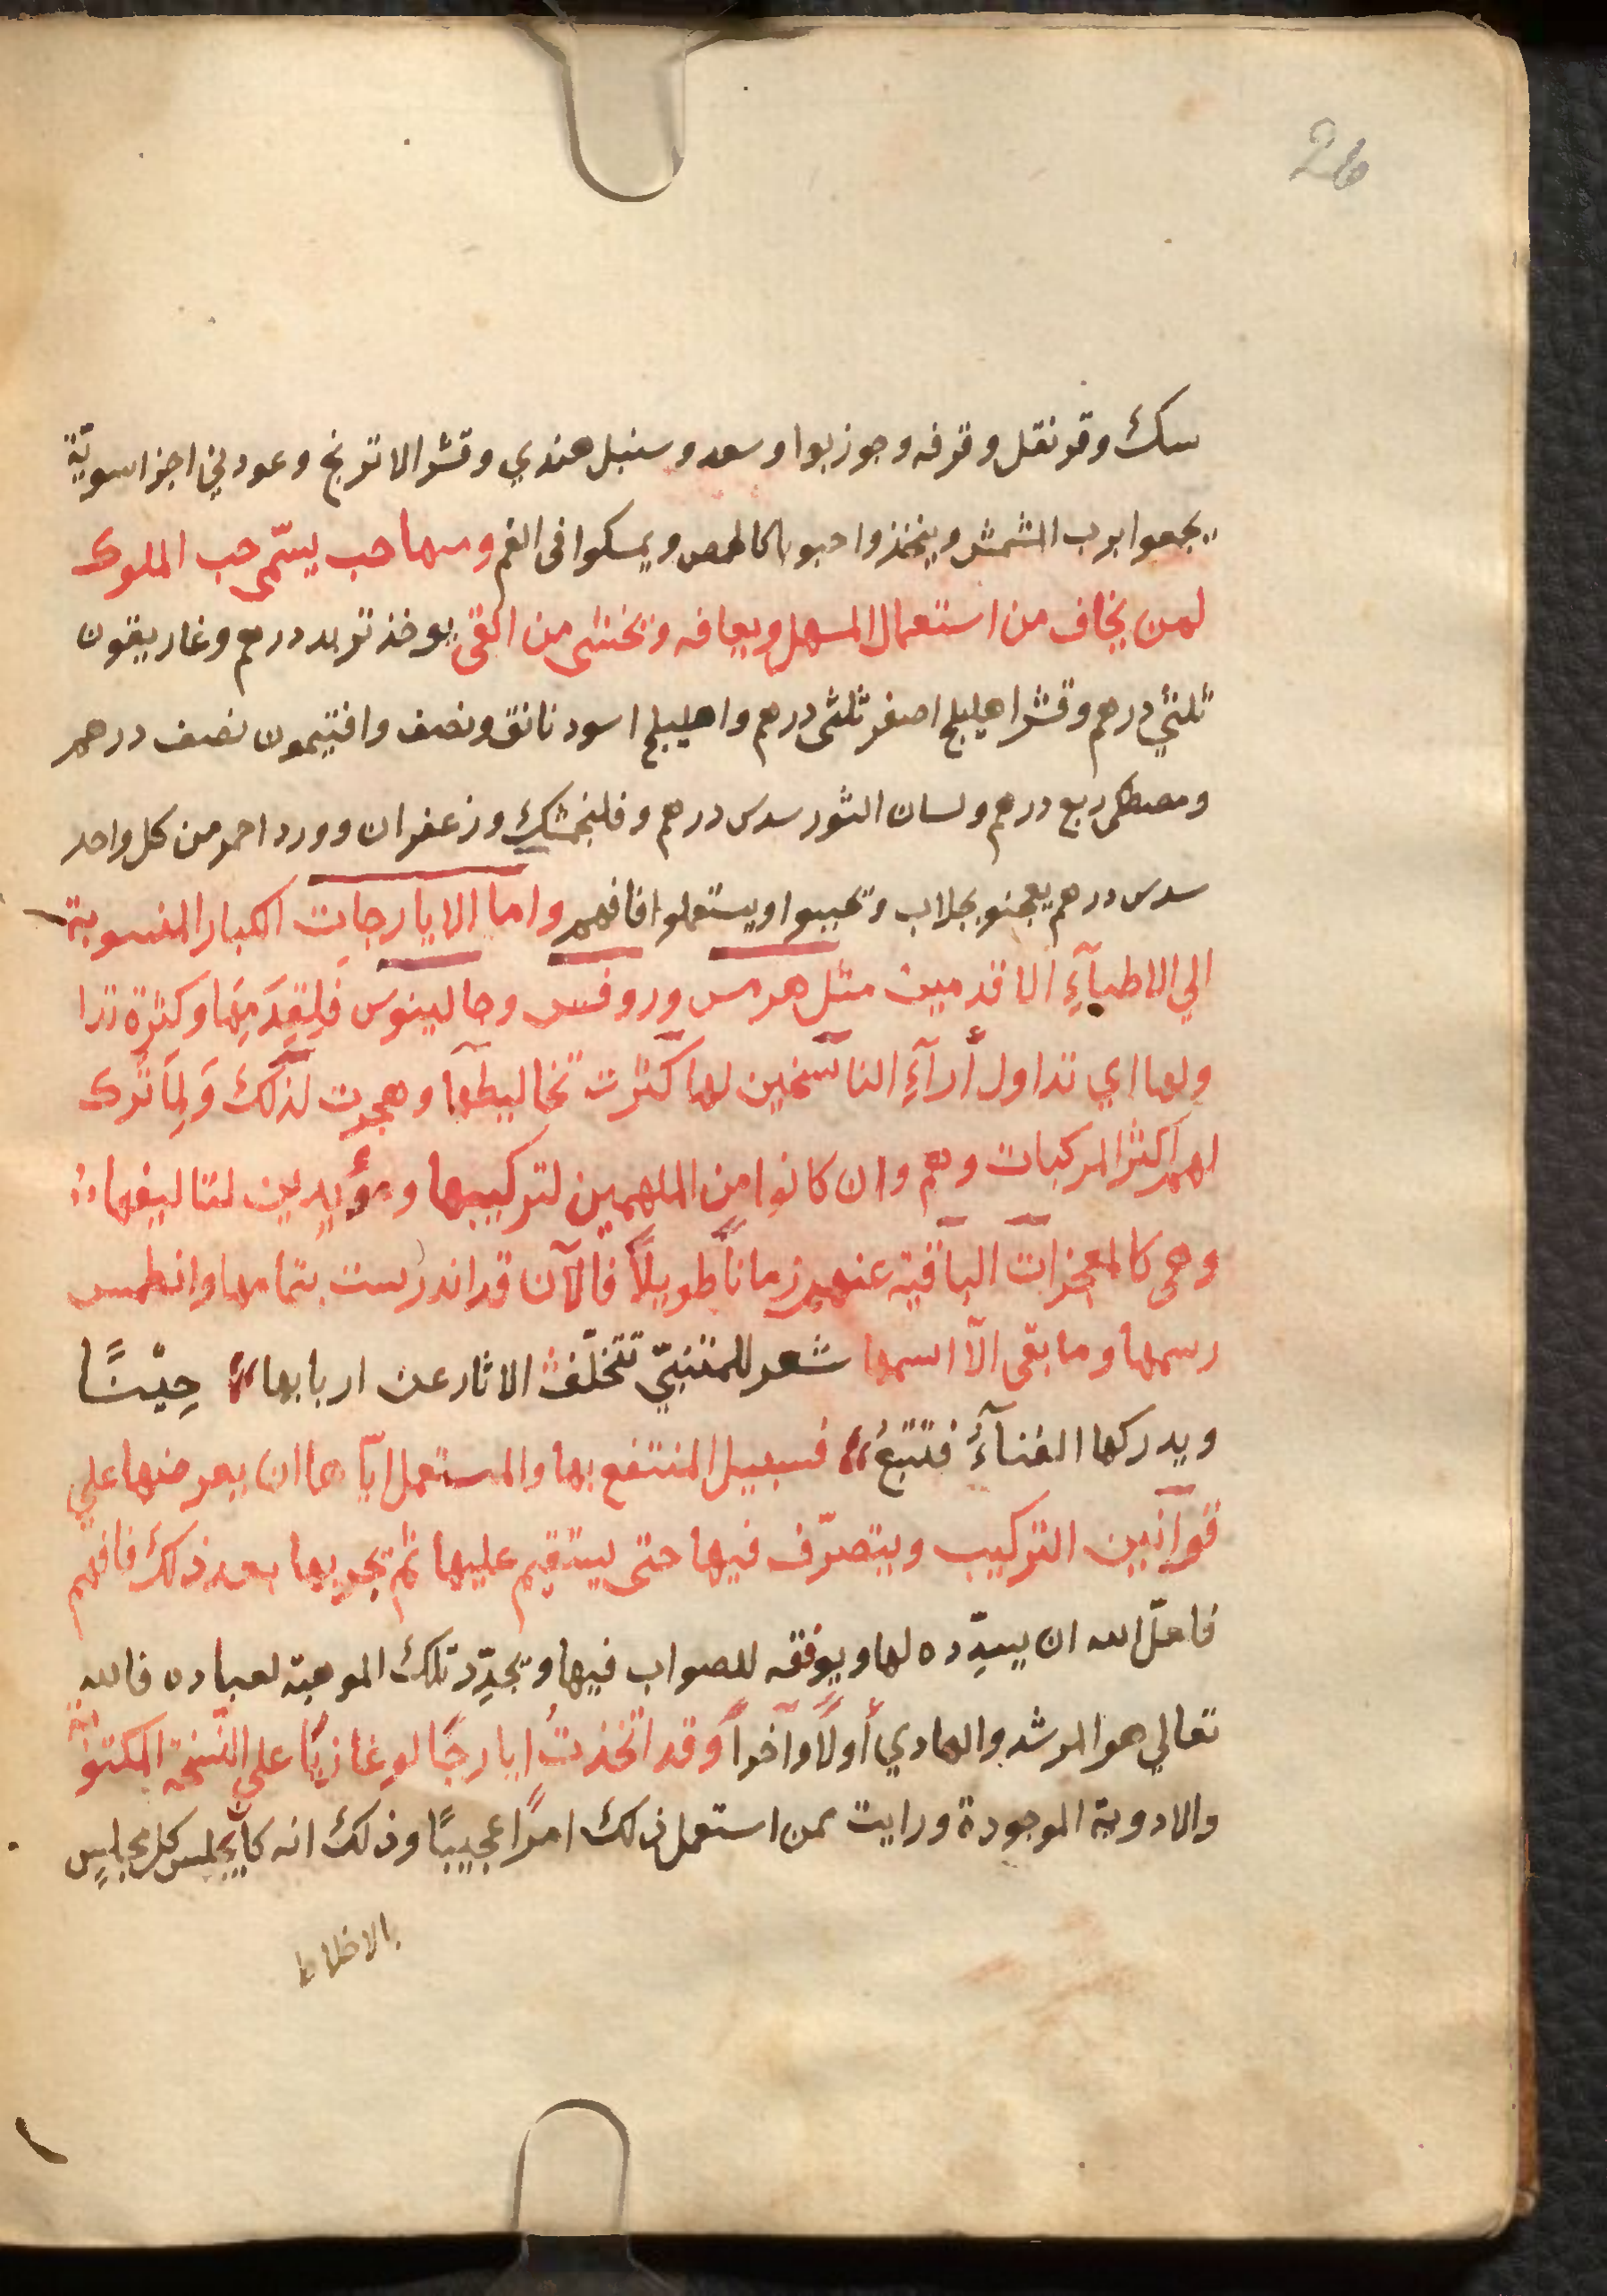 26
سك وقرنفل وقرفه وجوزبوا وسعد وسنبل هندي وقشر الاترنج وعود ني اجزا سوية
يجعوا برب المشمش ويتخذوا حبوبا كالحمص ويمسكوا فى الفم ومنها حب يسمّى حب الملوك
لمن يخاف من استعمال المسهل ويعافه وتخشى من القى يوخذ تربد درهم وغاريقون
ثلثي درهم وقشر اهليلج اصفر ثلثى درهم واهليلج اسود دانق ونصف وافتيمون نصف درهم
ومصطكى ربع درهم ولسان الثور سدس درهم وفلنجمشك وزعفران وورد احمر من كل واحد
سدس درهم يعجنو بجلاب وتحببوا ويستعملوا فافهم واما الايارجات الكبار المنسوبة
الي الاطبآءِ الاقدمين مثل هرمس وروفس وجالينوس فَلِقِدَمِهَا وكثرة تدا
ولها اي تداول أرآءِ الناسخين لها كثرت تخاليطها وهجرت لذلك وَلِمَا ترك
لهم اكثر المركبات وهم وان كانوا من الملهمين لتركيبها ومؤيدين لتاليفها
وهى كالمعجزات الباقية عنهم زماناً طويلاً فالآن قد اندرست بتمامها وانطمس
رسمها وما بقى الّا اسمها شعر للمتنبيّ تتخلّف الاثار عن اربابها حِيْنًا
ويدركها الفنآءُ فتتبعُ فسبيل المنتفع بها والمستعمل ايّاها ان يعرضها علي
قوانين التركيب ويتصرّف فيها حتى يستقيم عليها ثم يجربها بعد ذلك فافهم
فلعلّ الله ان يسدِّده لها ويوفقه للصواب فيها ويجدِّد تلك الموهبة لعباده فالله
تعالي هو المرشد والهادي أولاً وآخراً وقد اتخذتُ ايارجًا لوغاذيًا علي النسخة المكتوبة
والادوية الموجودة ورايت ممن استعمل ذلك امرًا عجيبًا وذلك انه كان يجلس كل مجلسٍ
بالاخلاط